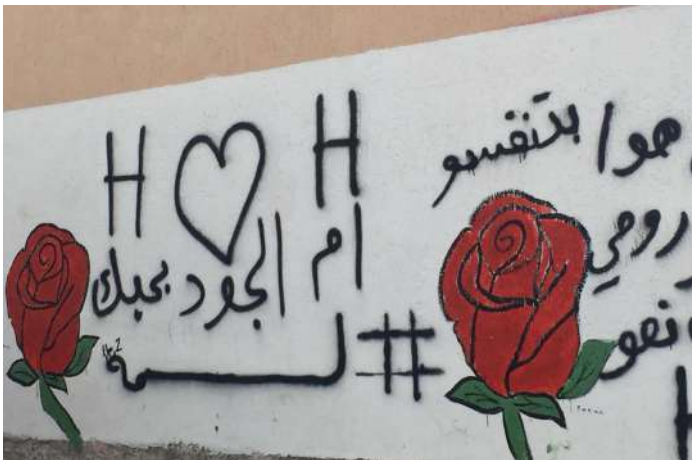 H ♡ H
ام الجود بحبك
#لمه
هوا بتنفسو
روحي